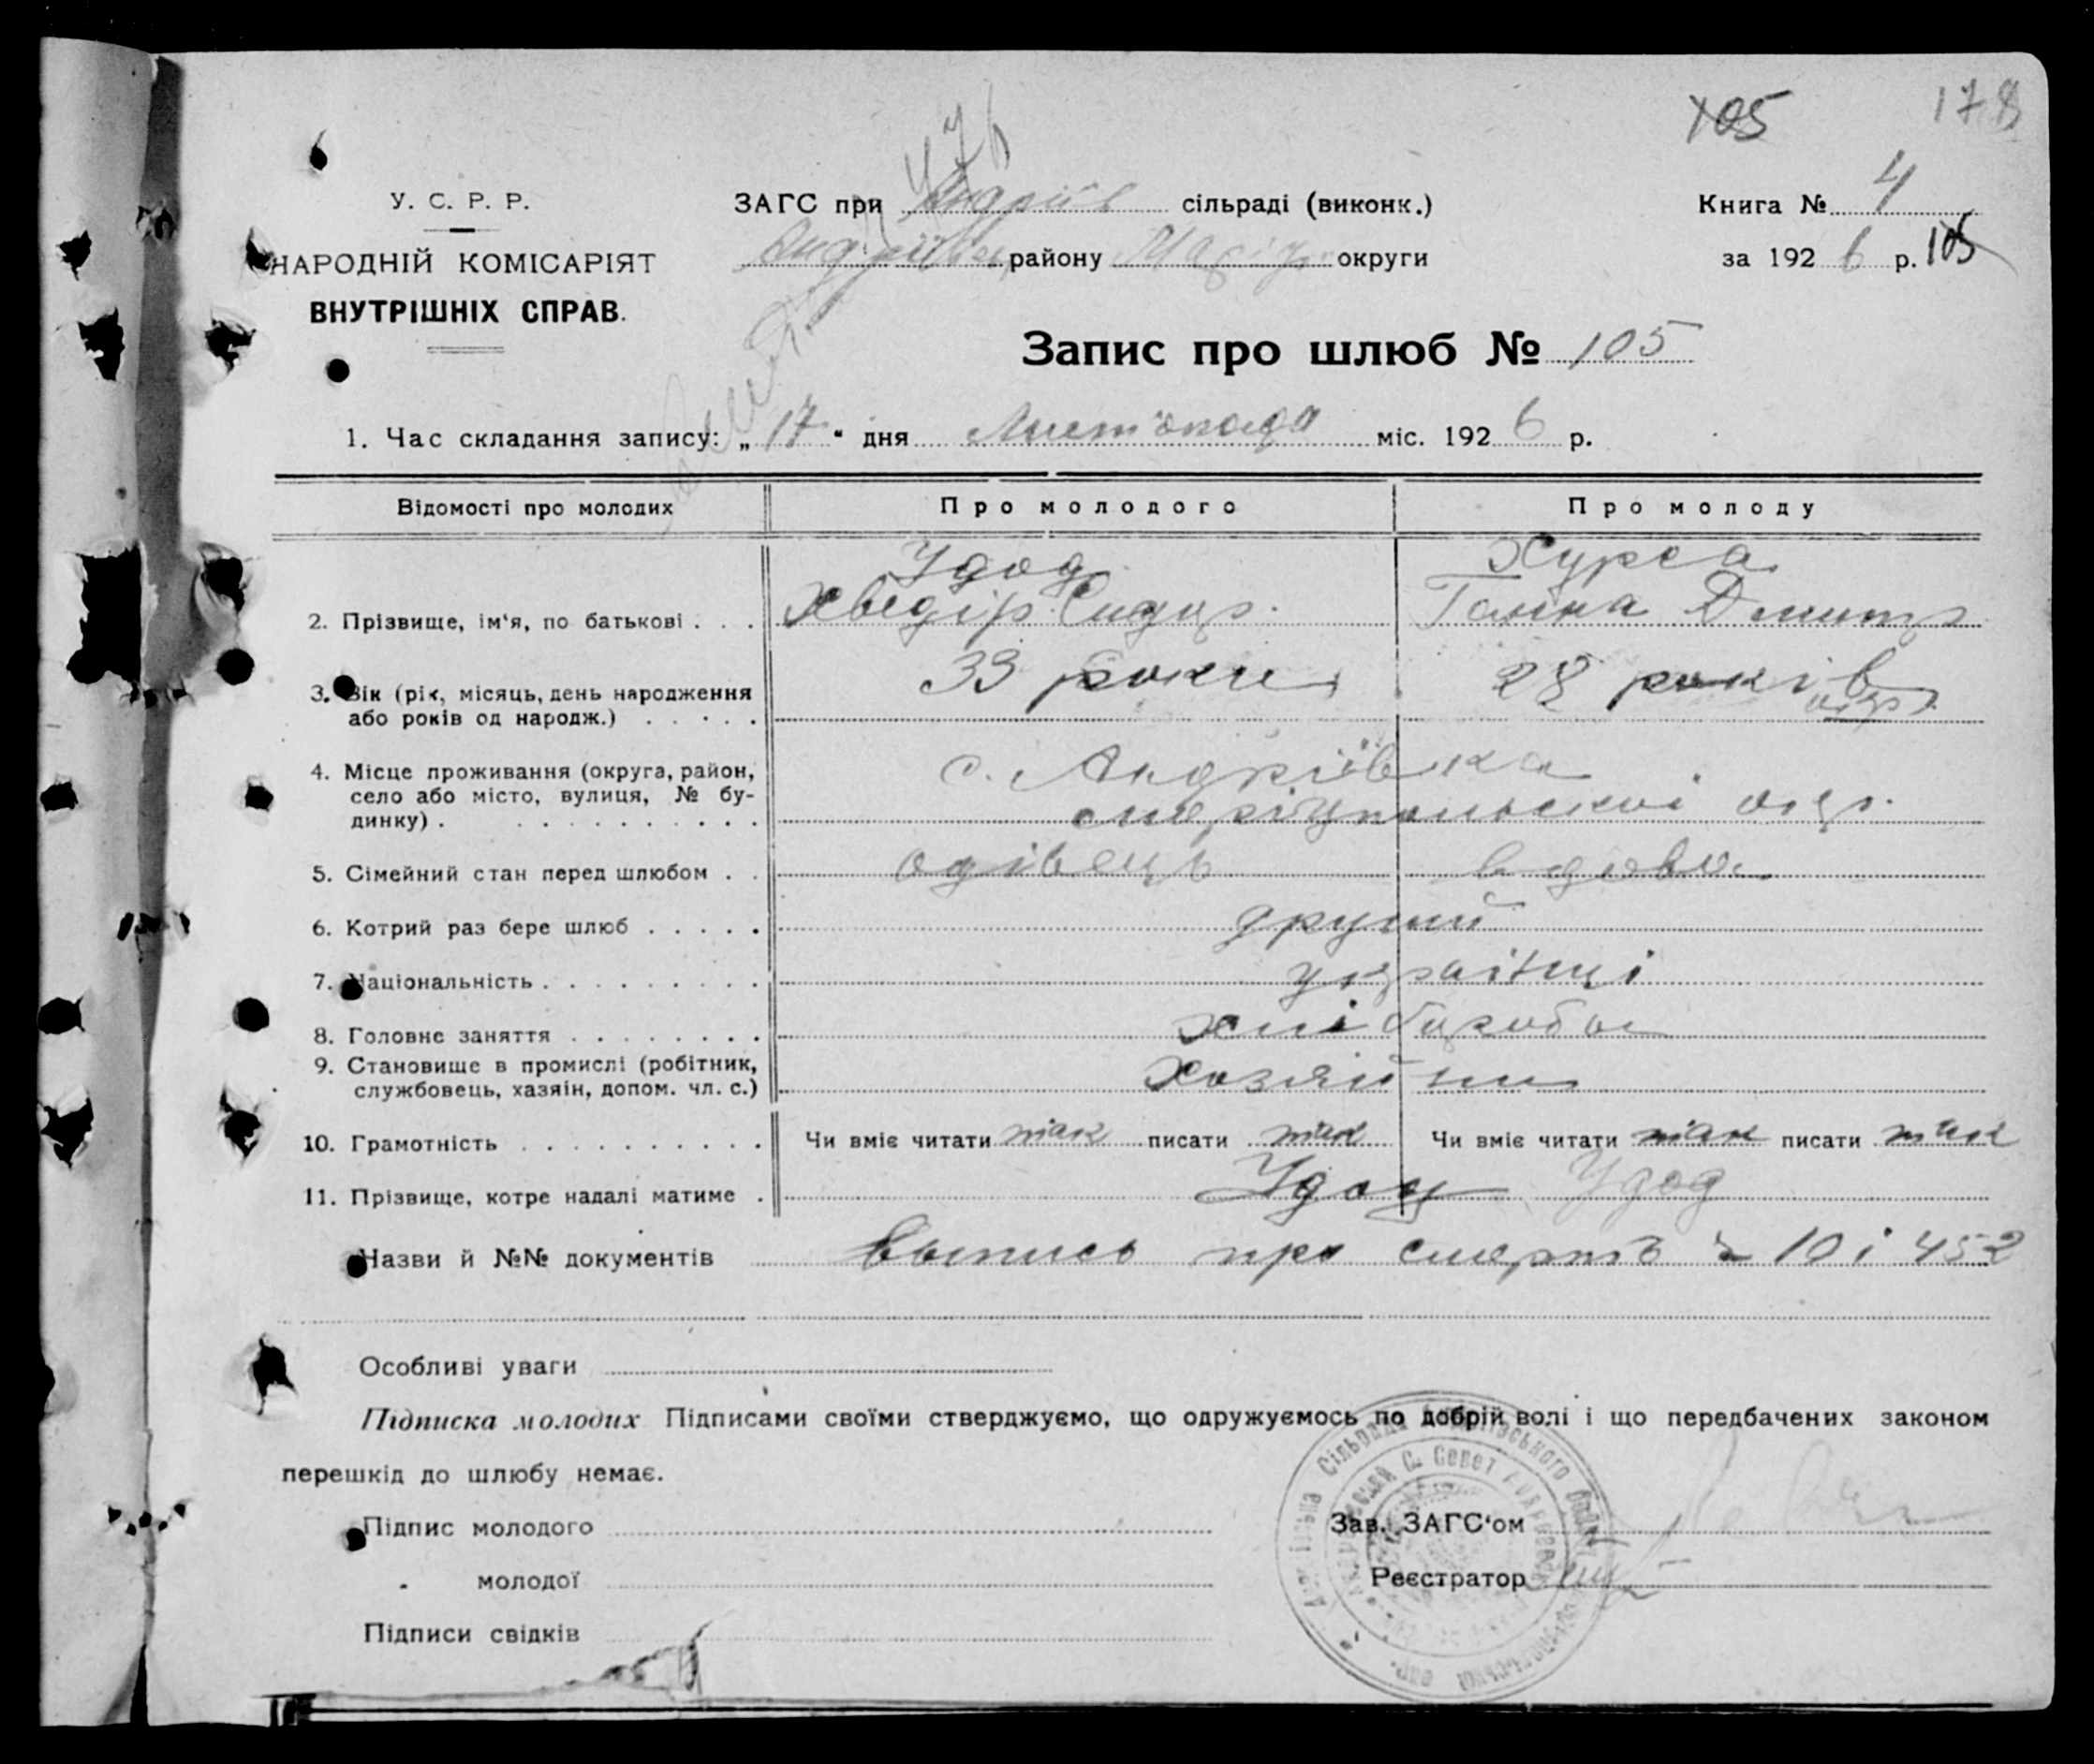 105 178
476
У. С. Р. Р.
НАРОДНІЙ КОМІСАРІЯТ
ВНУТРІШНІХ СПРАВ.
ЗАГС при Андріїв сільраді (виконк.)
Андріївськ району Маріуп округи
Книга № 4
за 192 6 р. 105
Запис про шлюб № 105
1. Час складання запису: „ 17 “ дня Листопада міс. 192 6 р.
Відомості про молодих Про молодого Про молоду
Удод Хурса
2. Прізвище, ім'я, по батькові . . . Хведір Сидір. Галина Дмитр
3. Вік (рік, місяць, день народження 33 роки 28 років
або років од народж.) . . . . .
4. Місце проживання (округа, район, с. Андріївка
село або місто, вулиця, № бу-
динку) . . . . . . . . . . . маріупольскоі окр.
5. Сімейний стан перед шлюбом . . одівець вдова
6. Котрий раз бере шлюб . . . . . другий
7. Національність . . . . . . . . . українці
8. Головне заняття . . . . . . . . хліборобы
9. Становище в промислі (робітник,
службовець, хазяін, допом. чл. с.) хозяйни
10. Грамотність . . . . . . . . . . Чи вміє читати так писати так Чи вміє читати так писати так
11. Прізвище, котре надалі матиме . Удод Удод
Назви й №№ документів выпись про смерть 10 і 452
Особливі уваги
Підписка молодих Підписами своїми стверджуємо, що одружуємось по добрій волі і що передбачених законом
перешкід до шлюбу немає.
Підпис молодого
Зав. ЗАГС'ом
„ молодої
Реєстратор
Підписи свідків